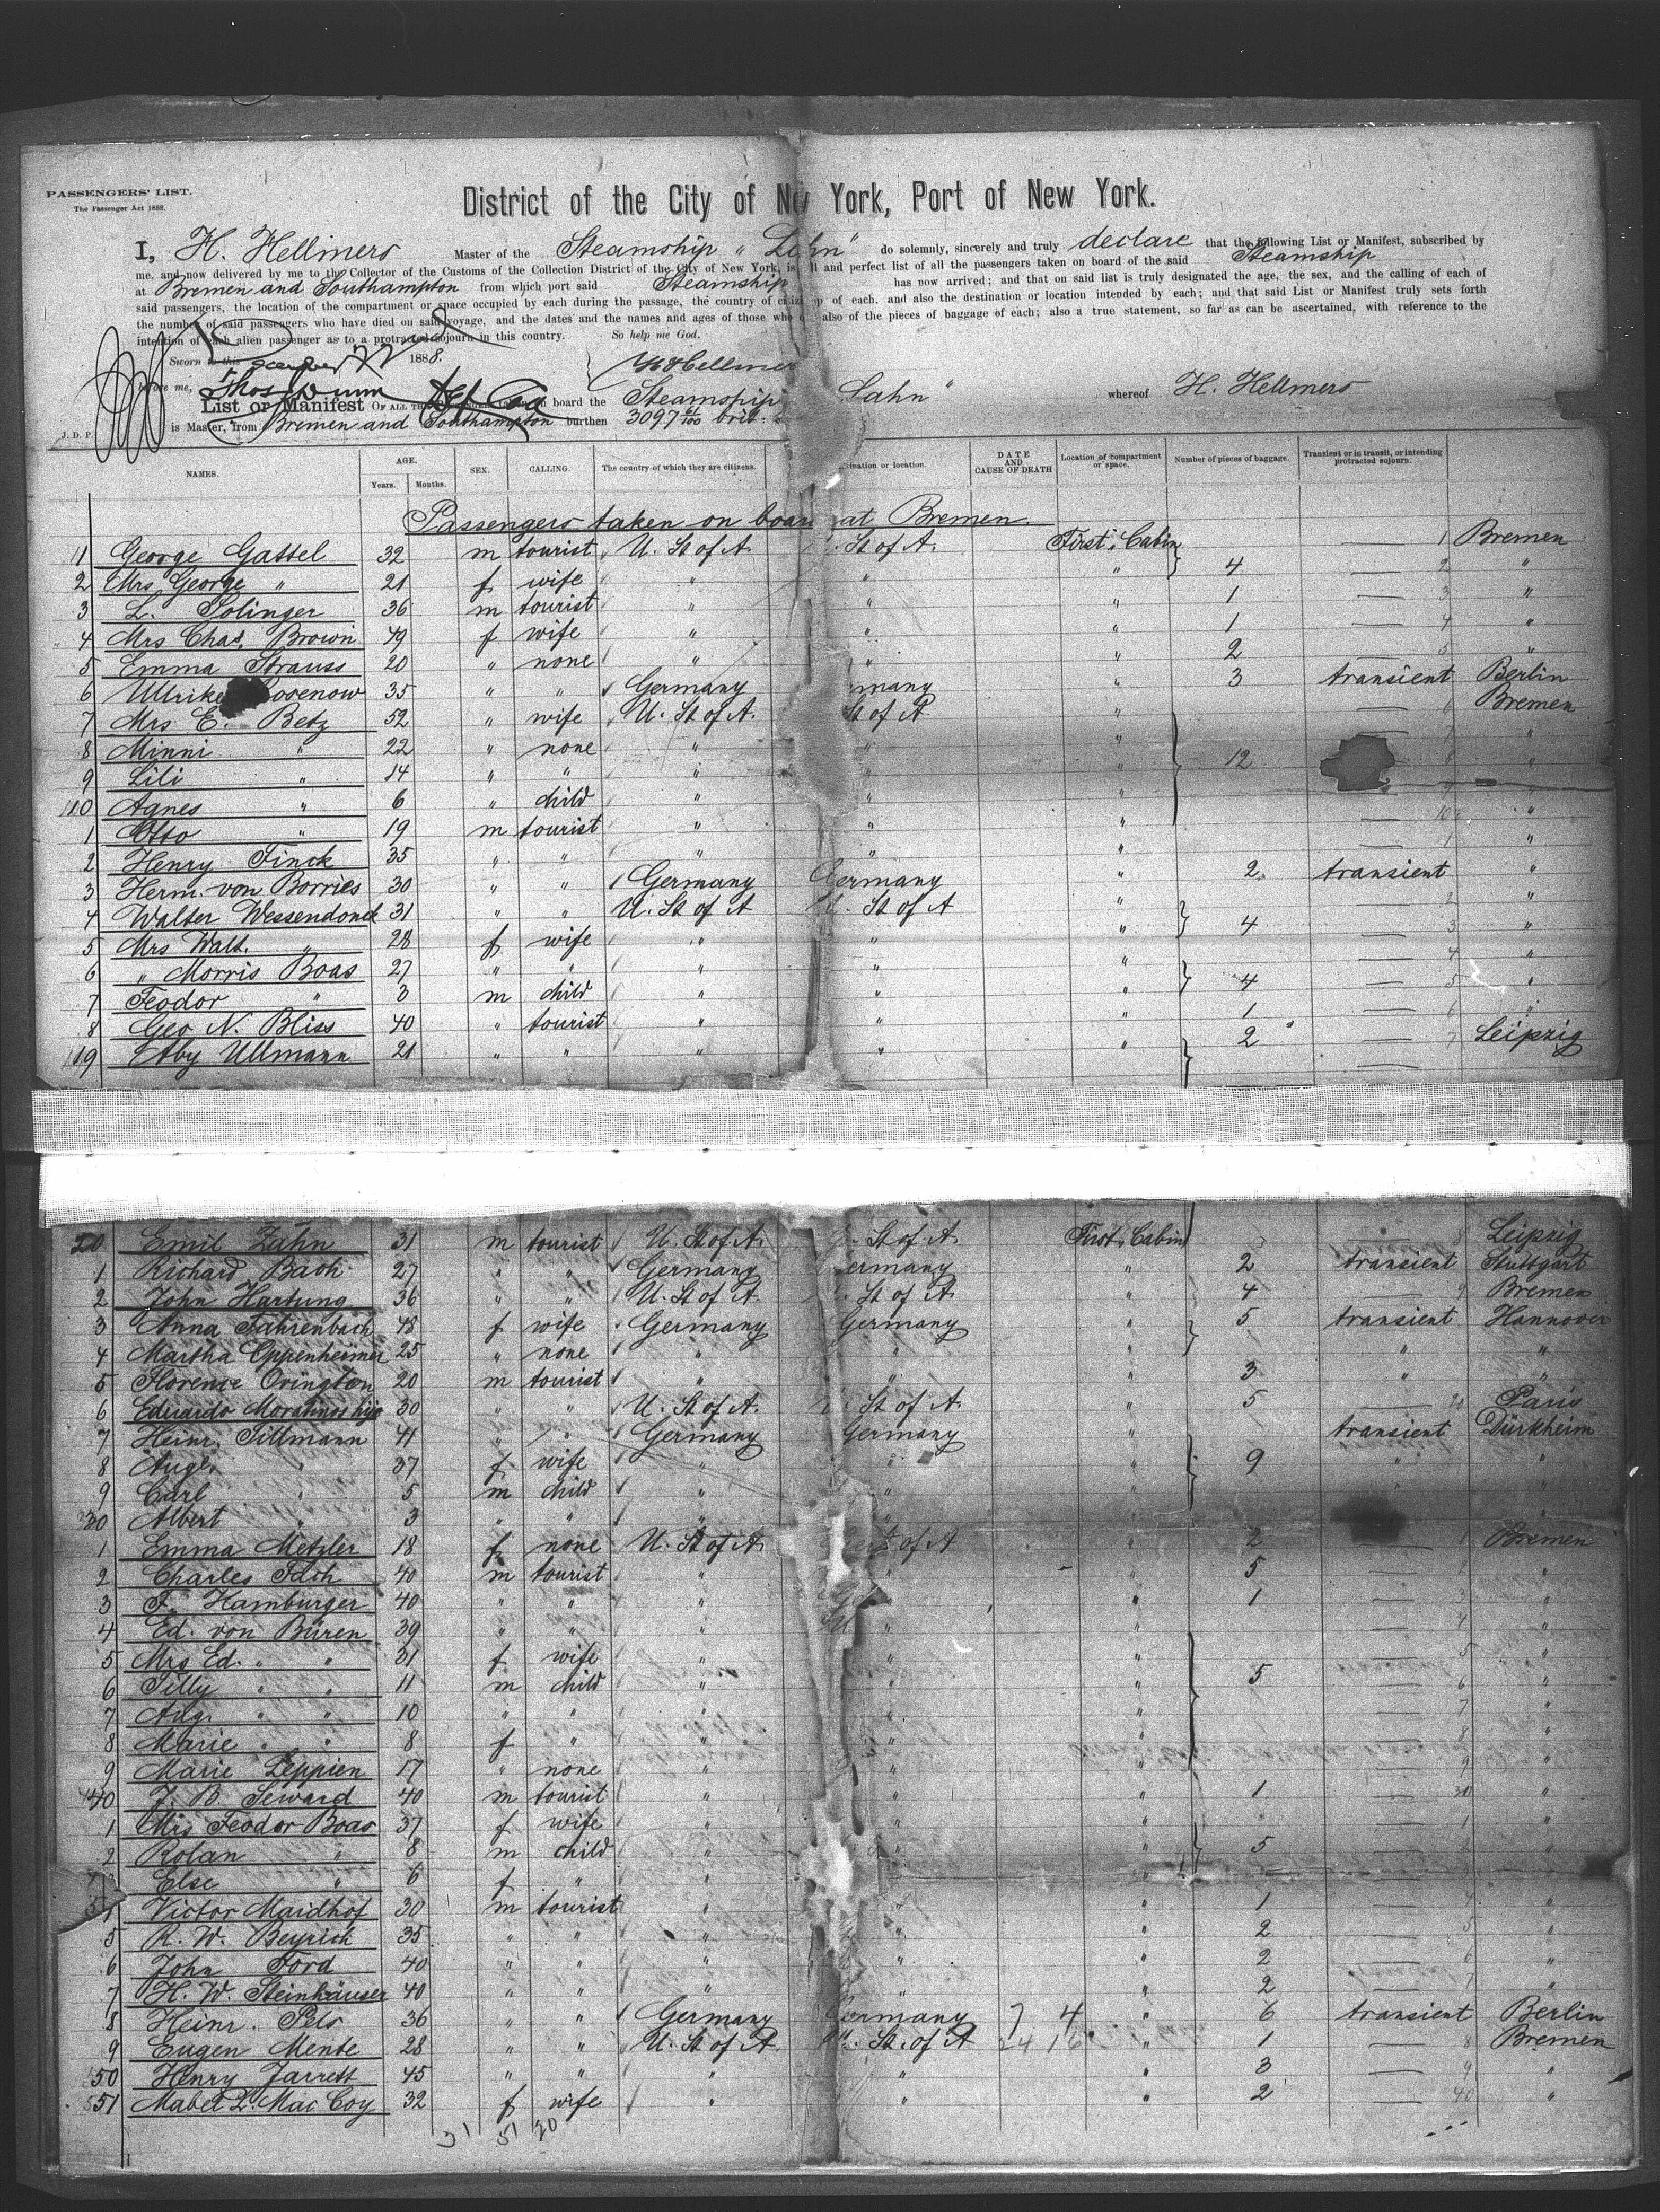 PASSENGERS' LIST.
The Passenger Act 1882.
District of the City of New York, Port of New York.
I, H. Hellmers Master of the Steamship "Lahn" do solemnly, sincerely and truly declare that the following List or Manifest, subscribed by
me, and now delivered by me to the Collector of the Customs of the Collection District of the City of New York, is ll and perfect list of all the passengers taken on board of the said Steamship
at Bremen and Southampton from which port said Steamship has now arrived; and that on said list is truly designated the age, the sex, and the calling of each of
said passengers, the location of the compartment or space occupied by each during the passage, the country of citiz p of each, and also the destination or location intended by each; and that said List or Manifest truly sets forth
the number of said passengers who have died on said voyage, and the dates and the names and ages of those who also of the pieces of baggage of each; also a true statement, so far as can be ascertained, with reference to the
intention of each alien passenger as to a protracted sojourn in this country. So help me God.
Sworn to this 22 1888.
before me, Thos Dunn HHellmer
List or Manifest OF ALL THE on board the Steamship Lahn" whereof H. Hellmers
J. D. P. is Master, from Bremen and Southampton burthen 3097 61/100
NAMES. AGE. Years. Months. SEX. CALLING. The country of which they are citizens. ination or location. DATE AND CAUSE OF DEATH Location of compartment or space. Number of pieces of baggage. Transient or in transit, or intending protracted sojourn.
Passengers taken on boar at Bremen.
1 George Gattel 32 m tourist U. St of A. St of A. First Cabin — 1 Bremen
2 Mrs George " 21 f wife " " " } 4 — 2 "
3 L. Solinger 36 m tourist " " " 1 — 3 "
4 Mrs Chas. Brown 49 f wife " " " 1 — 4 "
5 Emma Strauss 20 " none " " " 2 — 5 "
6 Ullrike osenow 35 " " Germany rmany " 3 transient Berlin
7 Mrs E. Betz 52 " wife U. St of A. St of A " — 6 Bremen
8 Minni " 22 " none " " " — 7 "
9 Lili " 14 " " " " " 12 8 "
10 Agnes " 6 " child " " " 9 "
1 Otto " 19 m tourist " " " — 10 "
2 Henry Finck 35 " " " " " — 1 "
3 Herm. von Borries 30 " " Germany Germany " 2 transient "
4 Walter Wessendonck 31 " " U. St of A U. St of A " } 4 — 2 "
5 Mrs Walt. " 28 f wife " " " — 3 "
6 " Morris Boas 27 " " " " " } 4 — 4 "
7 Feodor " 3 m child " " " — 5 "
8 Geo N. Bliss 40 " tourist " " " 1 — 6 "
19 Aby Ullmann 21 " " " " " } 2 — 7 Leipzig
20 Emil Zahn 31 m tourist U. St of A. St of A. First Cabin — 8 Leipzig
1 Richard Bach 27 " " Germany ermany " 2 transient Stuttgart
2 John Hartung 36 " " U. St of A. St of A. " 4 — 9 Bremen
3 Anna Fahrenbach 48 f wife Germany Germany " } 5 transient Hannover
4 Martha Oppenheimer 25 " none " " " " "
5 Florence Ovington 20 m tourist " " " 3 " "
6 Eduardo Moratinos hijo 30 " " U. St of A. St of A. " 5 — 20 Paris
7 Heinr. Tillmann 41 " " Germany Germany " transient Dürkheim
8 Auge. " 37 f wife " " " } 9 " "
9 Carl " 5 m child " " " " "
30 Albert " 3 " " " " " "
1 Emma Metzler 18 f none U. St of A. St of A " 2 — 1 Bremen
2 Charles 40 m tourist " " " 5 — 2 "
3 F. Hamburger 40 " " " " " 1 — 3 "
4 Ed. von Büren 39 " " " " " — 4 "
5 Mrs Ed. " " 31 f wife " " " — 5 "
6 Tilly " " 11 m child " " " 5 — 6 "
7 Aug. " " 10 " " " " " — 7 "
8 Marie " " 8 f " " " " — 8 "
9 Marie Zeppien 17 " none " " " — 9 "
40 F. B. Seward 40 m tourist " " " 1 — 30 "
1 Mrs Feodor Boas 37 f wife " " " — 1 "
2 Rolan " 8 m child " " " } 5 — 2 "
Else " 6 f " " " " "
Victor Maidhof 30 m tourist " " " 1 — 4 "
5 R. W. Beyrich 35 " " " " " 2 — 5 "
6 John Ford 40 " " " " " 2 — 6 "
7 H. W. Steinhäuser 40 " " " " " 2 — 7 "
8 Heinr. Pels 36 " " Germany Germany 7 4 " 6 transient Berlin
9 Eugen Mente 28 " " U. St of A. U. St. of A 24 16 " 1 — 8 Bremen
50 Henry Jarrett 45 " " " " " 3 — 9 "
51 Mabel L. Mac Coy 32 f wife " " " 2 — 40 "
31 51 20